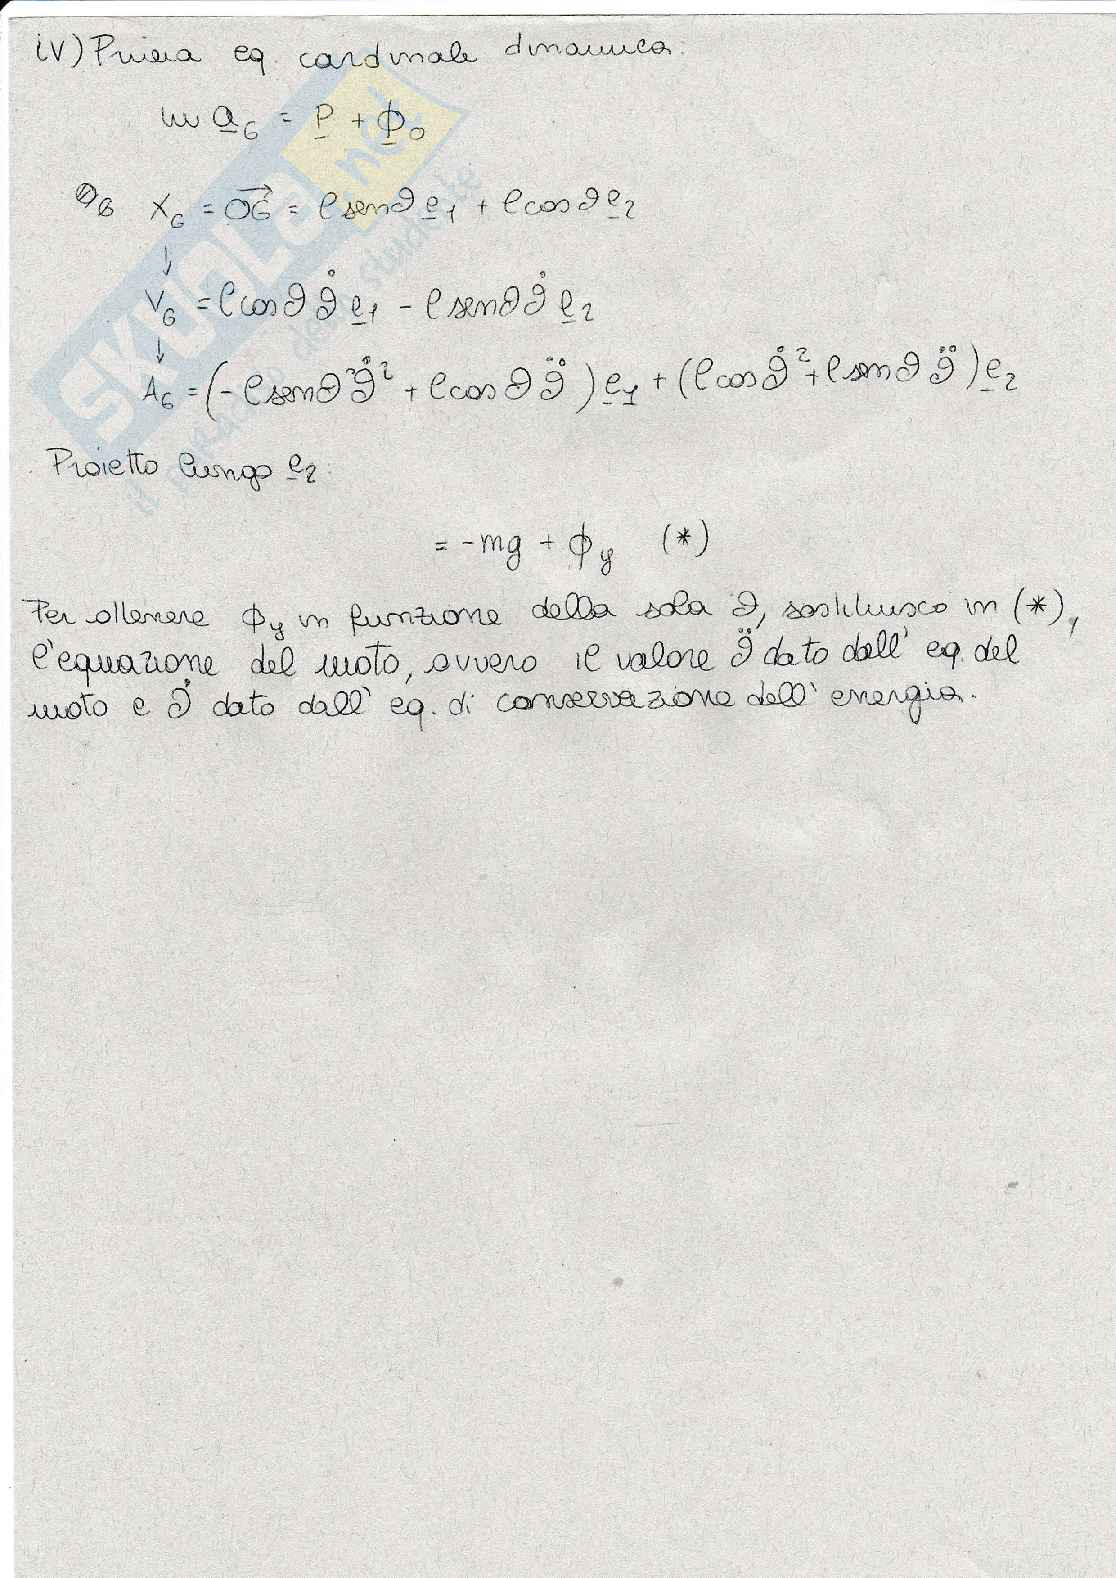 iv) Prima eq. cardinale dinamica:
m a_G = P + ϕ_O
X_G = OG = l senϑ e_1 + l cosϑ e_2
↓
V_G = l cosϑ ϑ̇ e_1 - l senϑ ϑ̇ e_2
↓
A_G = (- l senϑ ϑ̇² + l cosϑ ϑ̈) e_1 + (l cosϑ̇² + l senϑ ϑ̈) e_2
Proietto lungo e_2:
= -mg + ϕ_y (*)
Per ottenere ϕ_y in funzione della sola ϑ, sostituisco in (*),
l'equazione del moto, ovvero il valore ϑ̈ dato dall' eq. del
moto e ϑ̇ dato dall' eq. di conservazione dell' energia.
SKUOLA.net